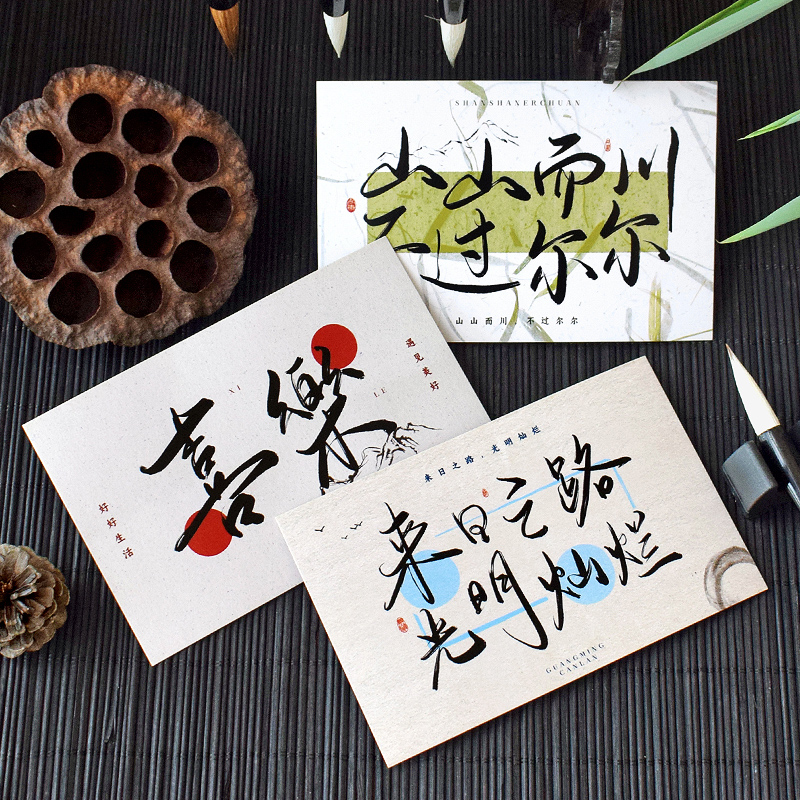 SHANSHANERCHUAN
山山而川
不过尔尔
山山而川，不过尔尔
遇见美好
XI
LE
喜樂
好好生活
来日之路，光明灿烂
来日之路
光明灿烂
GUANGMING
CANLAN